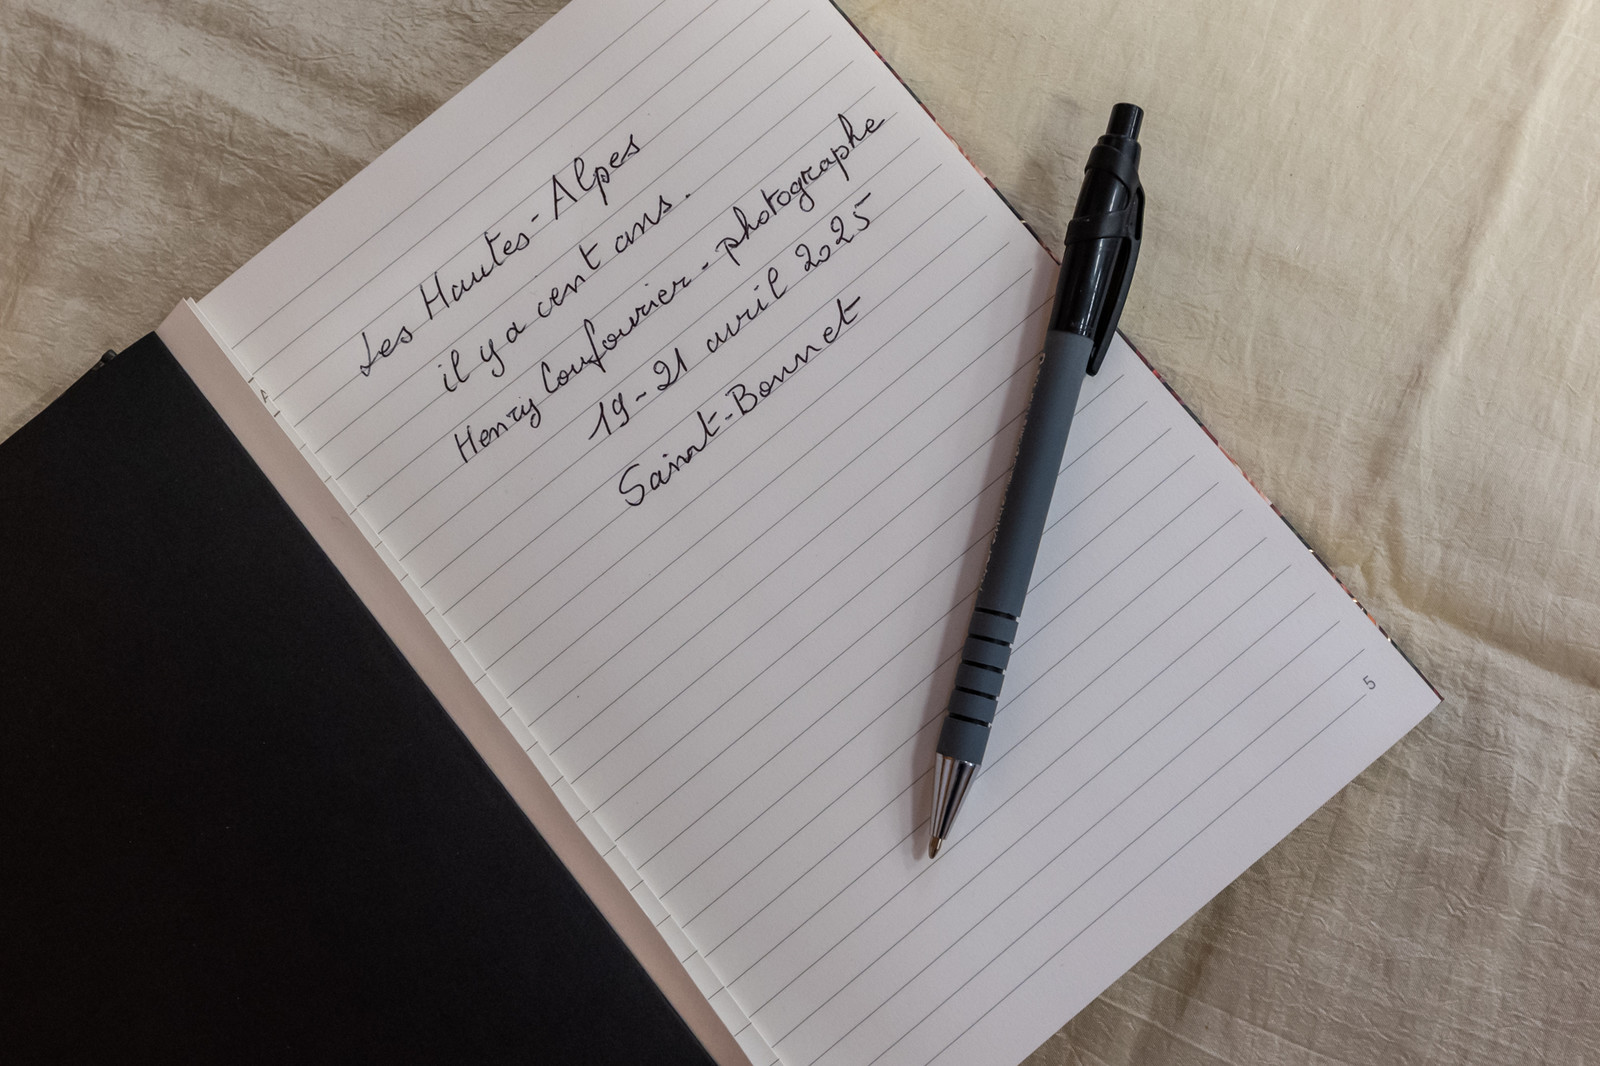 Les Hautes-Alpes
il y a cent ans.
Henry Confourier - photographe
19-21 avril 2025
Saint-Bonnet
5